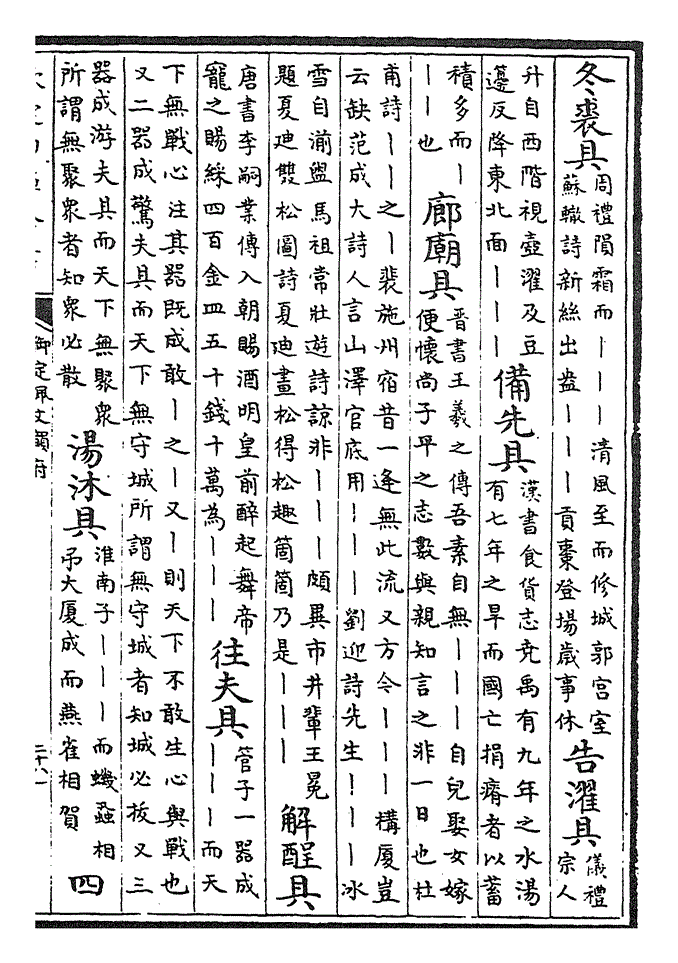 冬裘具
周禮隕霜而｜｜｜清風至而修城郭宫室
蘇轍詩新絲出盎｜｜｜貢棗登場歲事休
告濯具
儀禮
宗人
升自西階視壺濯及豆
邊反降東北面｜｜｜
備先具
漢書食貨志堯禹有九年之水湯
有七年之旱而國亡捐瘠者以蓄
積多而｜
｜｜也
廊廟具
晉書王羲之傳吾素自無｜｜｜自兒娶女嫁
便懷尚子平之志數與親知言之非一日也杜
甫詩｜｜之｜裴施州宿昔一逢無此流又方今｜｜｜構厦豈
云缺范成大詩人言山澤官底用｜｜｜劉迎詩先生｜｜｜冰
雪自湔盥馬祖常壯遊詩諒非｜｜｜頗異市井輩王冕
題夏迪雙松圖詩夏迪畫松得松趣箇箇乃是｜｜｜
解酲具
唐書李嗣業傳入朝賜酒明皇前醉起舞帝
寵之賜綵四百金皿五十錢十萬為｜｜｜
往夫具
管子一器成
｜｜｜而天
下無戰心注其器既成敢｜之｜又｜則天下不敢生心與戰也
又二器成驚夫具而天下無守城所謂無守城者知城必拔又三
器成游夫具而天下無聚衆
所謂無聚衆者知衆必散
湯沐具
淮南子｜｜｜而蟣蝨相
弔大厦成而燕雀相賀
四
御定佩文韻府